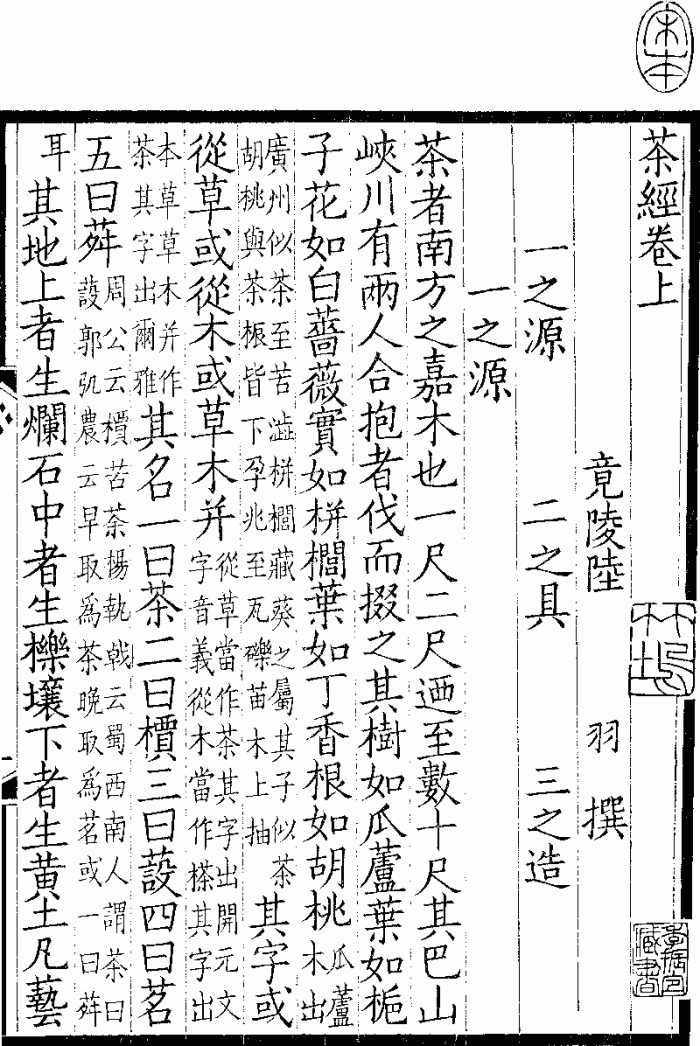 宋本
茶經卷上
竟陵陸　羽　撰
一之源　二之具　三之造
一之源
茶者南方之嘉木也一尺二尺迺至數十尺其巴山
峽川有兩人合抱者伐而掇之其樹如瓜蘆葉如梔
子花如白薔薇實如栟櫚葉如丁香根如胡桃瓜蘆木出
廣州似茶至苦澁栟櫚藏葵之屬其子似茶胡桃與茶根皆下孕兆至瓦礫苗木上抽其字或
從草或從木或草木并從草當作茶其字出開元文字音義從木當作搽其字出
本草草木并作茶其字出爾雅其名一曰茶二曰檟三曰蔎四曰茗
五曰荈周公云檟苦荼楊執戟云蜀西南人謂茶曰蔎郭弘農云早取爲茶晚取爲茗或一曰荈
耳其地上者生爛石中者生櫟壤下者生黃土凡藝
竹塢